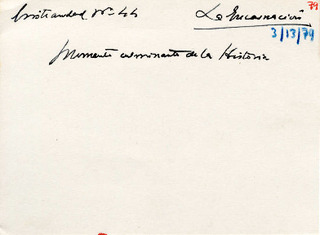 Cristiandad Nº 44
La Encarnación
79
3/13/79
Momento culminante de la Historia